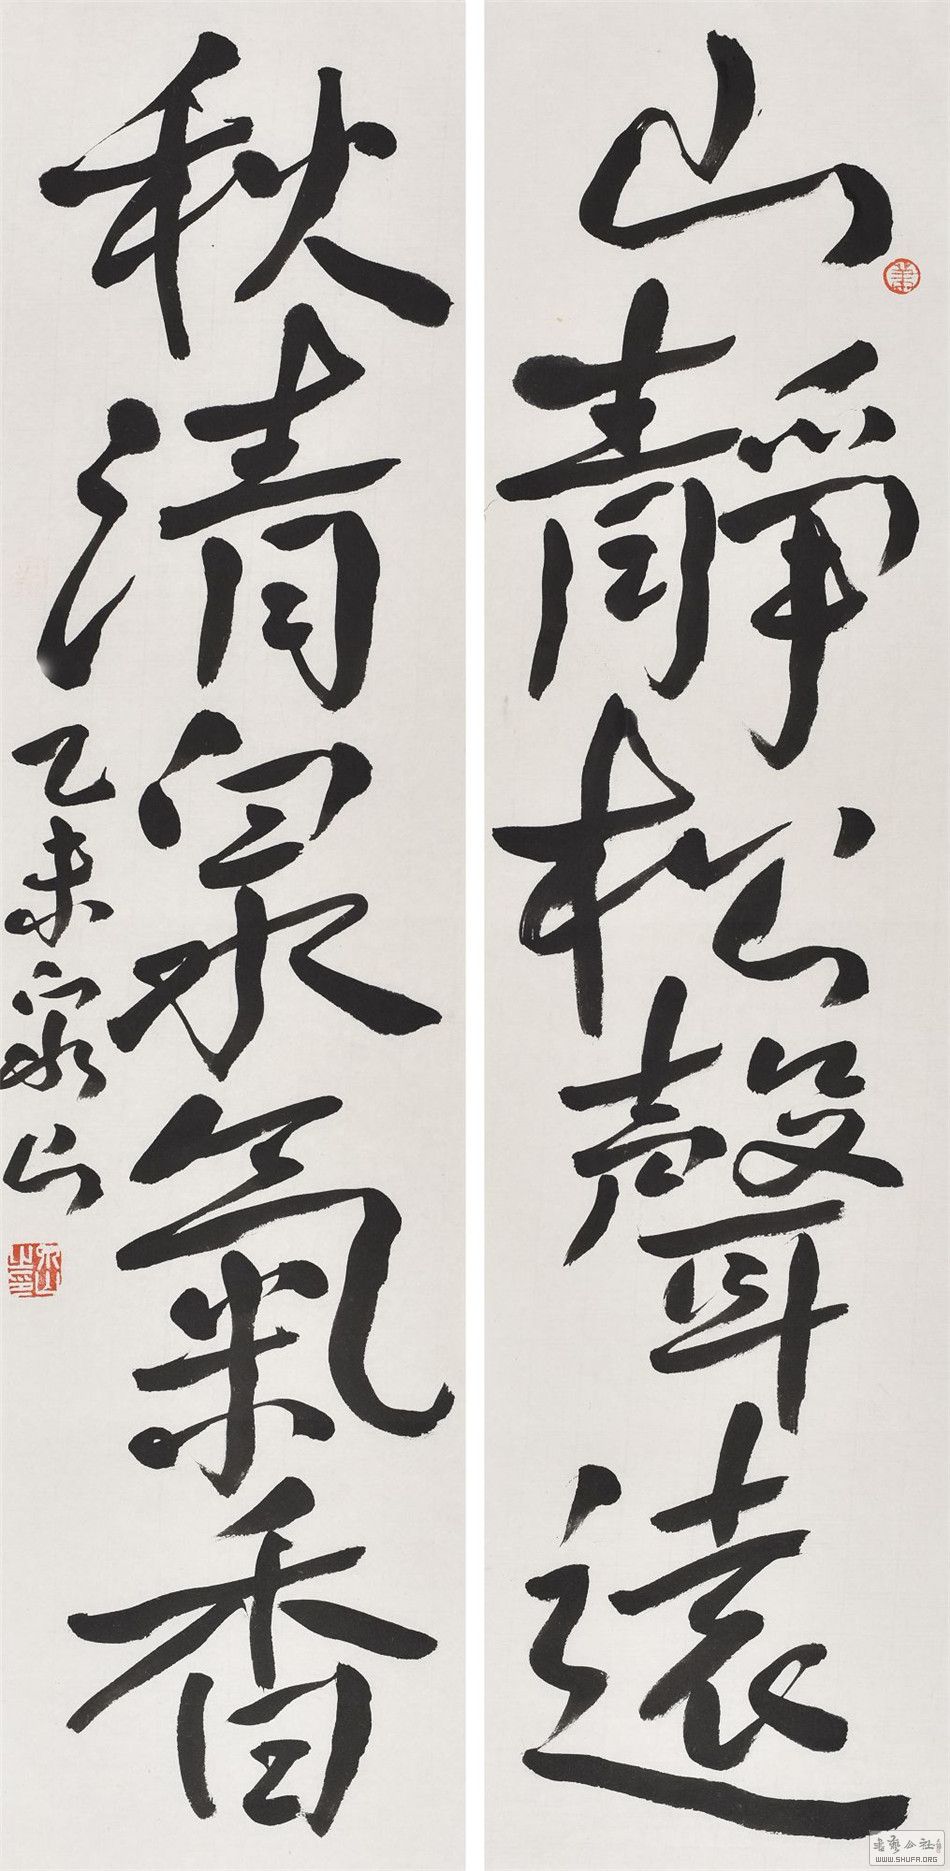 山靜松聲遠
秋清泉氣香
乙未家山
书艺公社
WWW.SHUFA.ORG